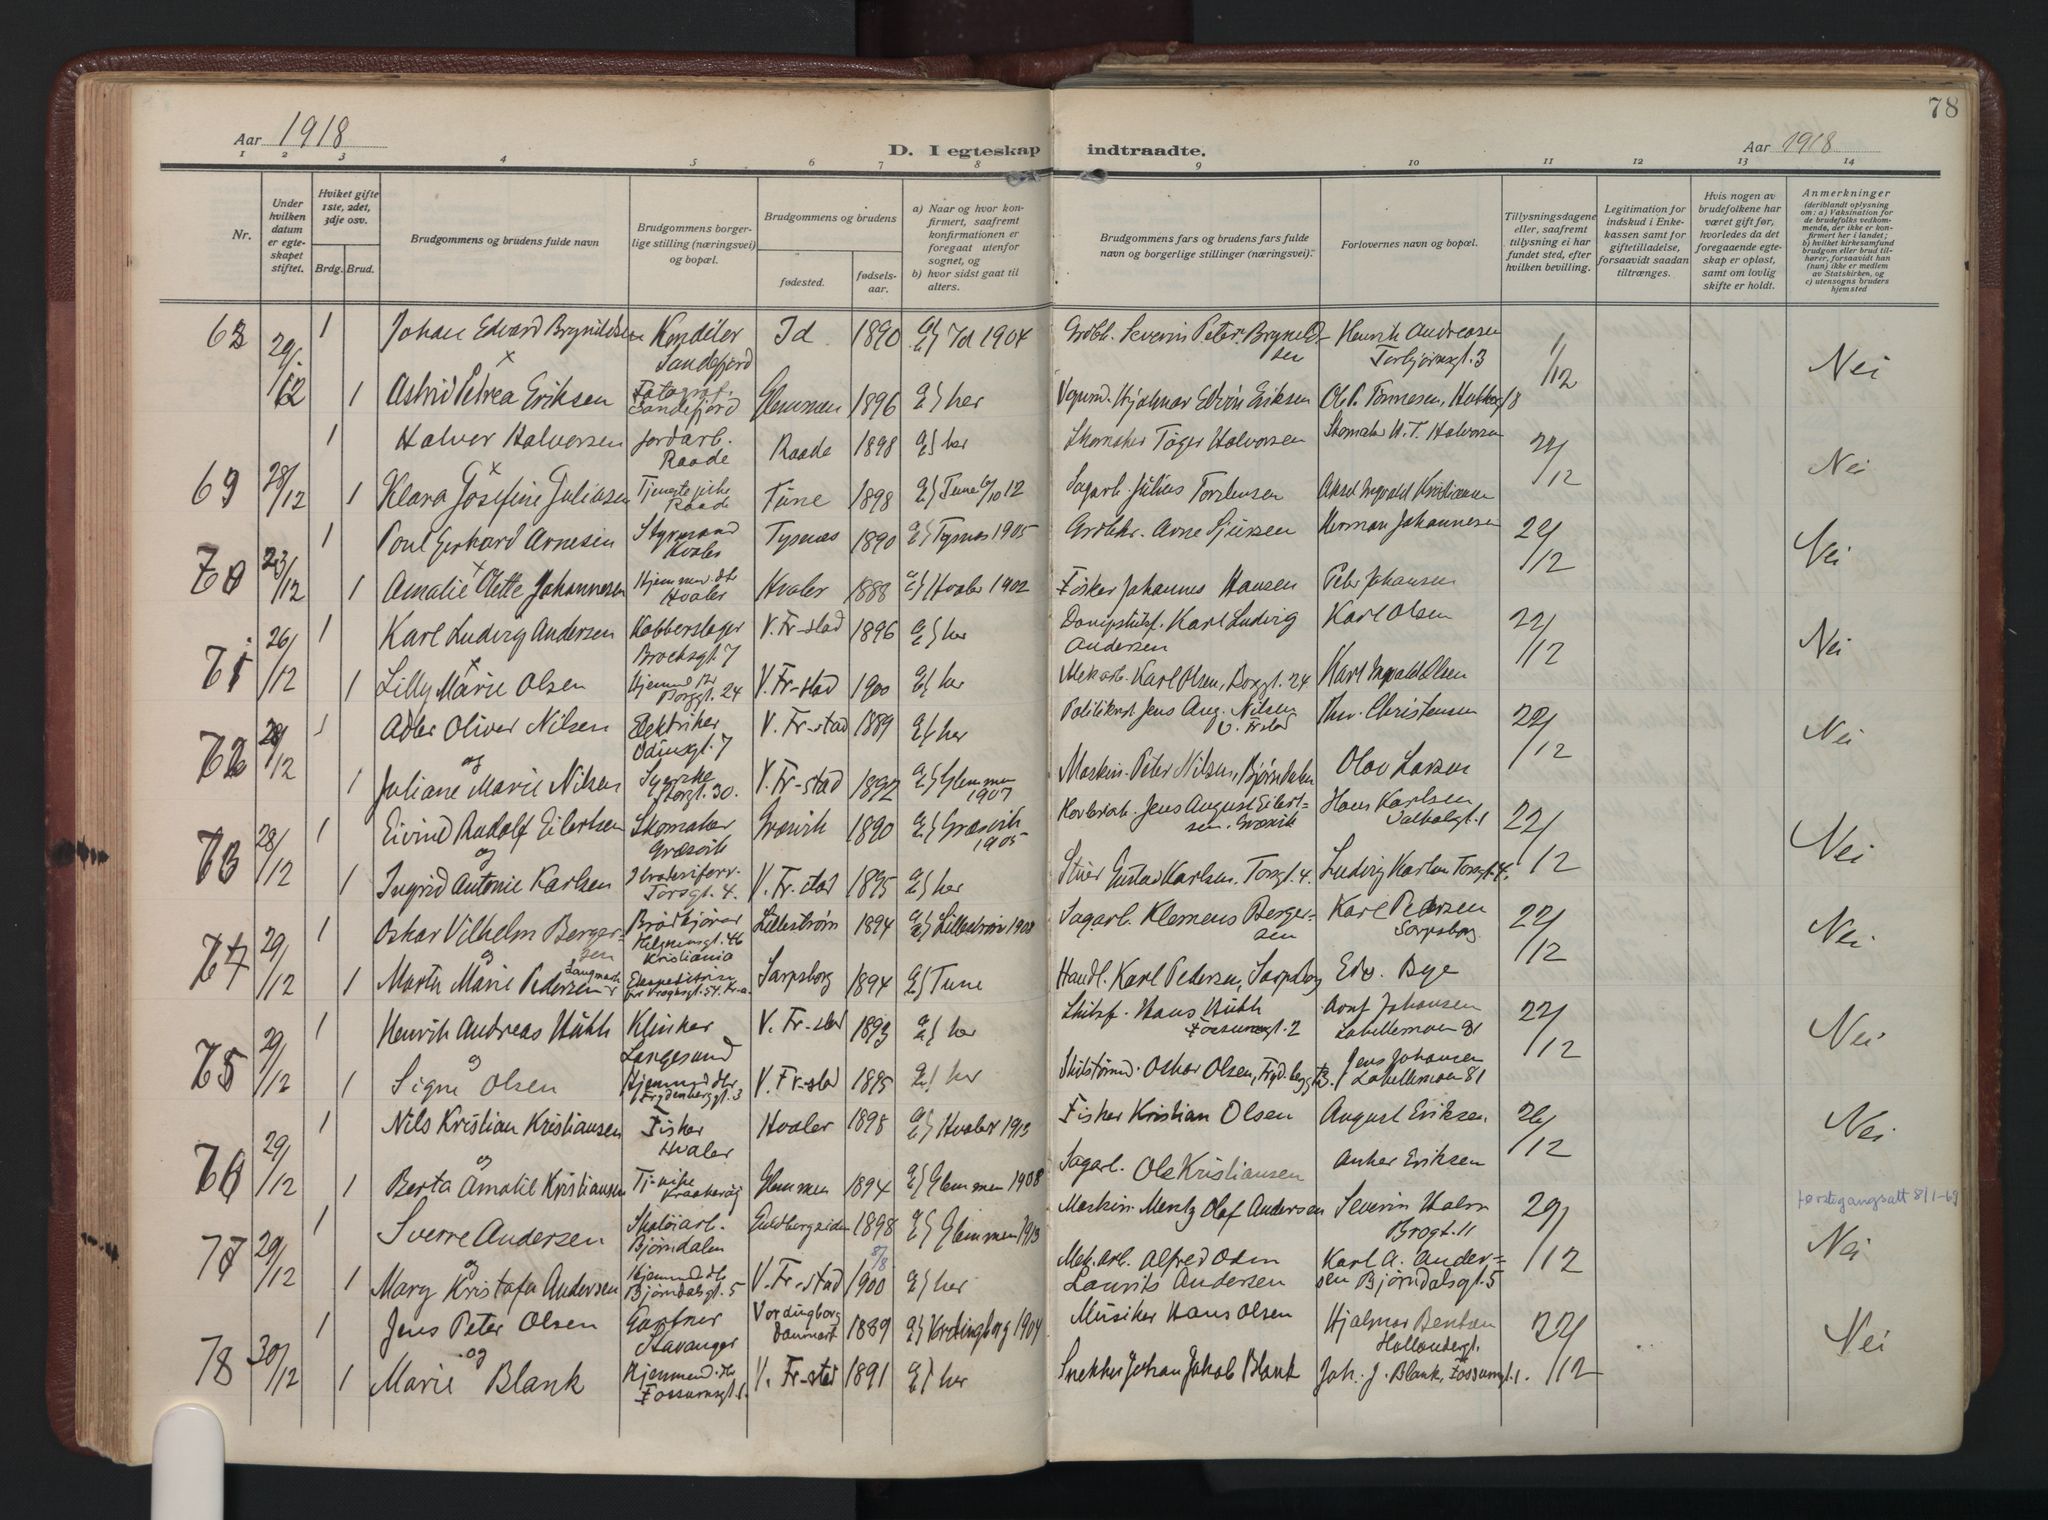 78
Aar 1918
D. I egteskap indtraadte.
Aar 1918
1 2 3 4 5 6 7 8 9 10 11 12 13 14
Nr.
Under hvilken datum er egteskapet stiftet.
Hvilket gifte 1ste, 2det, 3dje osv.
Brdg. Brud.
Brudgommens og brudens fulde navn
Brudgommens borgerlige stilling (næringsvei) og bopæl.
Brudgommens og brudens
fødested.
fødselsaar.
a) Naar og hvor konfirmert, saafremt konfirmationen er foregaat utenfor sognet, og
b) hvor sidst gaat til alters.
Brudgommens fars og brudens fars fulde navn og borgerlige stillinger (næringsvei).
Forlovernes navn og bopæl.
Tillysningsdagene eller, saafremt tillysning ei har fundet sted, efter hvilken bevilling.
Legitimation for indskud i Enkekassen samt for giftetilladelse, forsaavidt saadan tiltrænges.
Hvis nogen av brudefolkene har været gift før, hvorledes da det foregaaende egteskap er opløst, samt om lovlig skifte er holdt.
Anmerkninger
(deriblandt oplysning om: a) Vaksination for de brudefolks vedkommende, der ikke er konfirmert her i landet; b) hvilket kirkesamfund brudgom eller brud tilhører, forsaavidt han (hun) ikke er medlem av Statskirken, og c) utensogns bruders hjemsted
1 Johan Edvard Brynildsen Konditer Sandefjord Id 1890 Id 1904 Severin Peter Brynildsen Henrik Andreasen Torbjørnsgt. 3 1/12 Nei
1 Astrid Petrea Eriksen Fotograf. Sandefjord Glemmen 1896 her Hjalmar Edvin Eriksen Ole P. Tønnesen,
69 28/12 1 Halver Halvorsen Jordarb. Raade Raade 1898 her Skomaker Tøger Halvorsen Skomaker H. T. Halvorsen 22/12 Nei
1 Klara Josefine Juliusen Tjenestepike Raade Tune 1898 Tune 6/10 12 Sagarb. Julius Torstensen Aksel Ingvald Kristiansen
70 23/12 1 Poul Gerhard Arnesen Styrmand Hvaler Tysnæs 1890 Tysnæs 1905 Arne Sjursen Herman Johannesen 22/12 Nei
1 Amalie Olette Johannesen Hjemmev. dtr Hvaler Hvaler 1888 Hvaler 1902 Fisker Johannes Hansen Peter Johansen
71 26/12 1 Karl Ludvig Andersen Kobberslager Brochsgt. 7 V. Fr-stad 1896 her Karl Ludvig Andersen Karl Olsen 22/12 Nei
1 Lilly Marie Olsen Borggt. 24 V. Fr-stad 1900 her Mek. arb. Karl Olsen, Borggt. 24 Karl Ingvald Olsen
72 28/12 1 Adler Oliver Nilsen Elektriker Odinsgt. 7 V. Fr-stad 1889 her Jens Aug. Nilsen V. Frstad Thv. Christensen 22/12 Nei
og
1 Juliane Marie Nilsen Syerske V. Fr-stad 1892 Glemmen 1907 Maskin. Peter Nilsen, Bjørndalen Olav Larsen
73 28/12 1 Eivind Rudolf Eilertsen Skomaker Græsvik Græsvik 1890 Græsvik 1905 Jens August Eilertsen. Græsvik Hans Karlsen 22/12 Nei
og
1 Ingrid Antonie Karlsen Torsgt. 4. V. Fr. stad 1895 her Stuer Gustav Karlsen, Torsgt. 4. Ludvig Karlsen Torsgt. 4.
74 29/12 1 Oskar Vilhelm Bergersen Brødkjører Kristiania Lillestrøm 1894 Lillestrøm 1908 Sagarb. Klemens Bergersen Karl Pedersen Sarpsborg 22/12 Nei
og
1 Marta Marie Pedersen Sarpsborg 1894 Tune Handl. Karl Pedersen, Sarpsborg Edv. Bye
75 29/12 1 Henrik Andreas Hüth Klinker Langesund V. Fr-stad 1893 her Skibsf. Hans Hüth Fossumsgt. 2 Arnf Johansen Labellemoen 81 22/12 Nei
og
1 Signe Olsen Hjemmev. dtr Frydenberggt. 3 V. Fr-stad 1895 her Oskar Olsen, Jens Johansen Labellemoen 81
76 29/12 1 Nils Kristian Kristiansen Fisker Hvaler Hvaler 1895 Hvaler 1913 Fisker Kristian Olsen August Eriksen 22/12 Nei
og
1 Berta Amalie Kristiansen Tj.-pike Kraakerøy Glemmen 1894 Glemmen 1908 Sagarb. Ole Kristiansen Anker Eriksen
Førstegangsatt 8/1-69
77 29/12 1 Sverre Andersen Skotøiarb. Bjørndalen Guldbergsiden 1898 Glemmen 1913 Maskin. Mentz Olaf Andersen Severin Holm Brogt. 11 29/12 Nei
og
1 Mary Kristofa Andersen Hjemmev. dtr Bjørndalsgt. 5 V. Fr-stad 8/8 1900 her Mek. arb. Alfred Odin Laurits Andersen Karl A. Andersen Bjørndalsgt. 5
78 30/12 1 Jens Peter Olsen Gartner Stavanger Vordingborg Danmark 1889 Vordingborg 1904 Musiker Hans Olsen Hjalmar Hollendergt. 22/12 Nei
og
1 Marie Blank Hjemmev. dtr Fossumsgt. 1. V. Fr-stad 1891 her Snekker Johan Jakob Blank Joh. J. Blank, Fossumgt. 1.